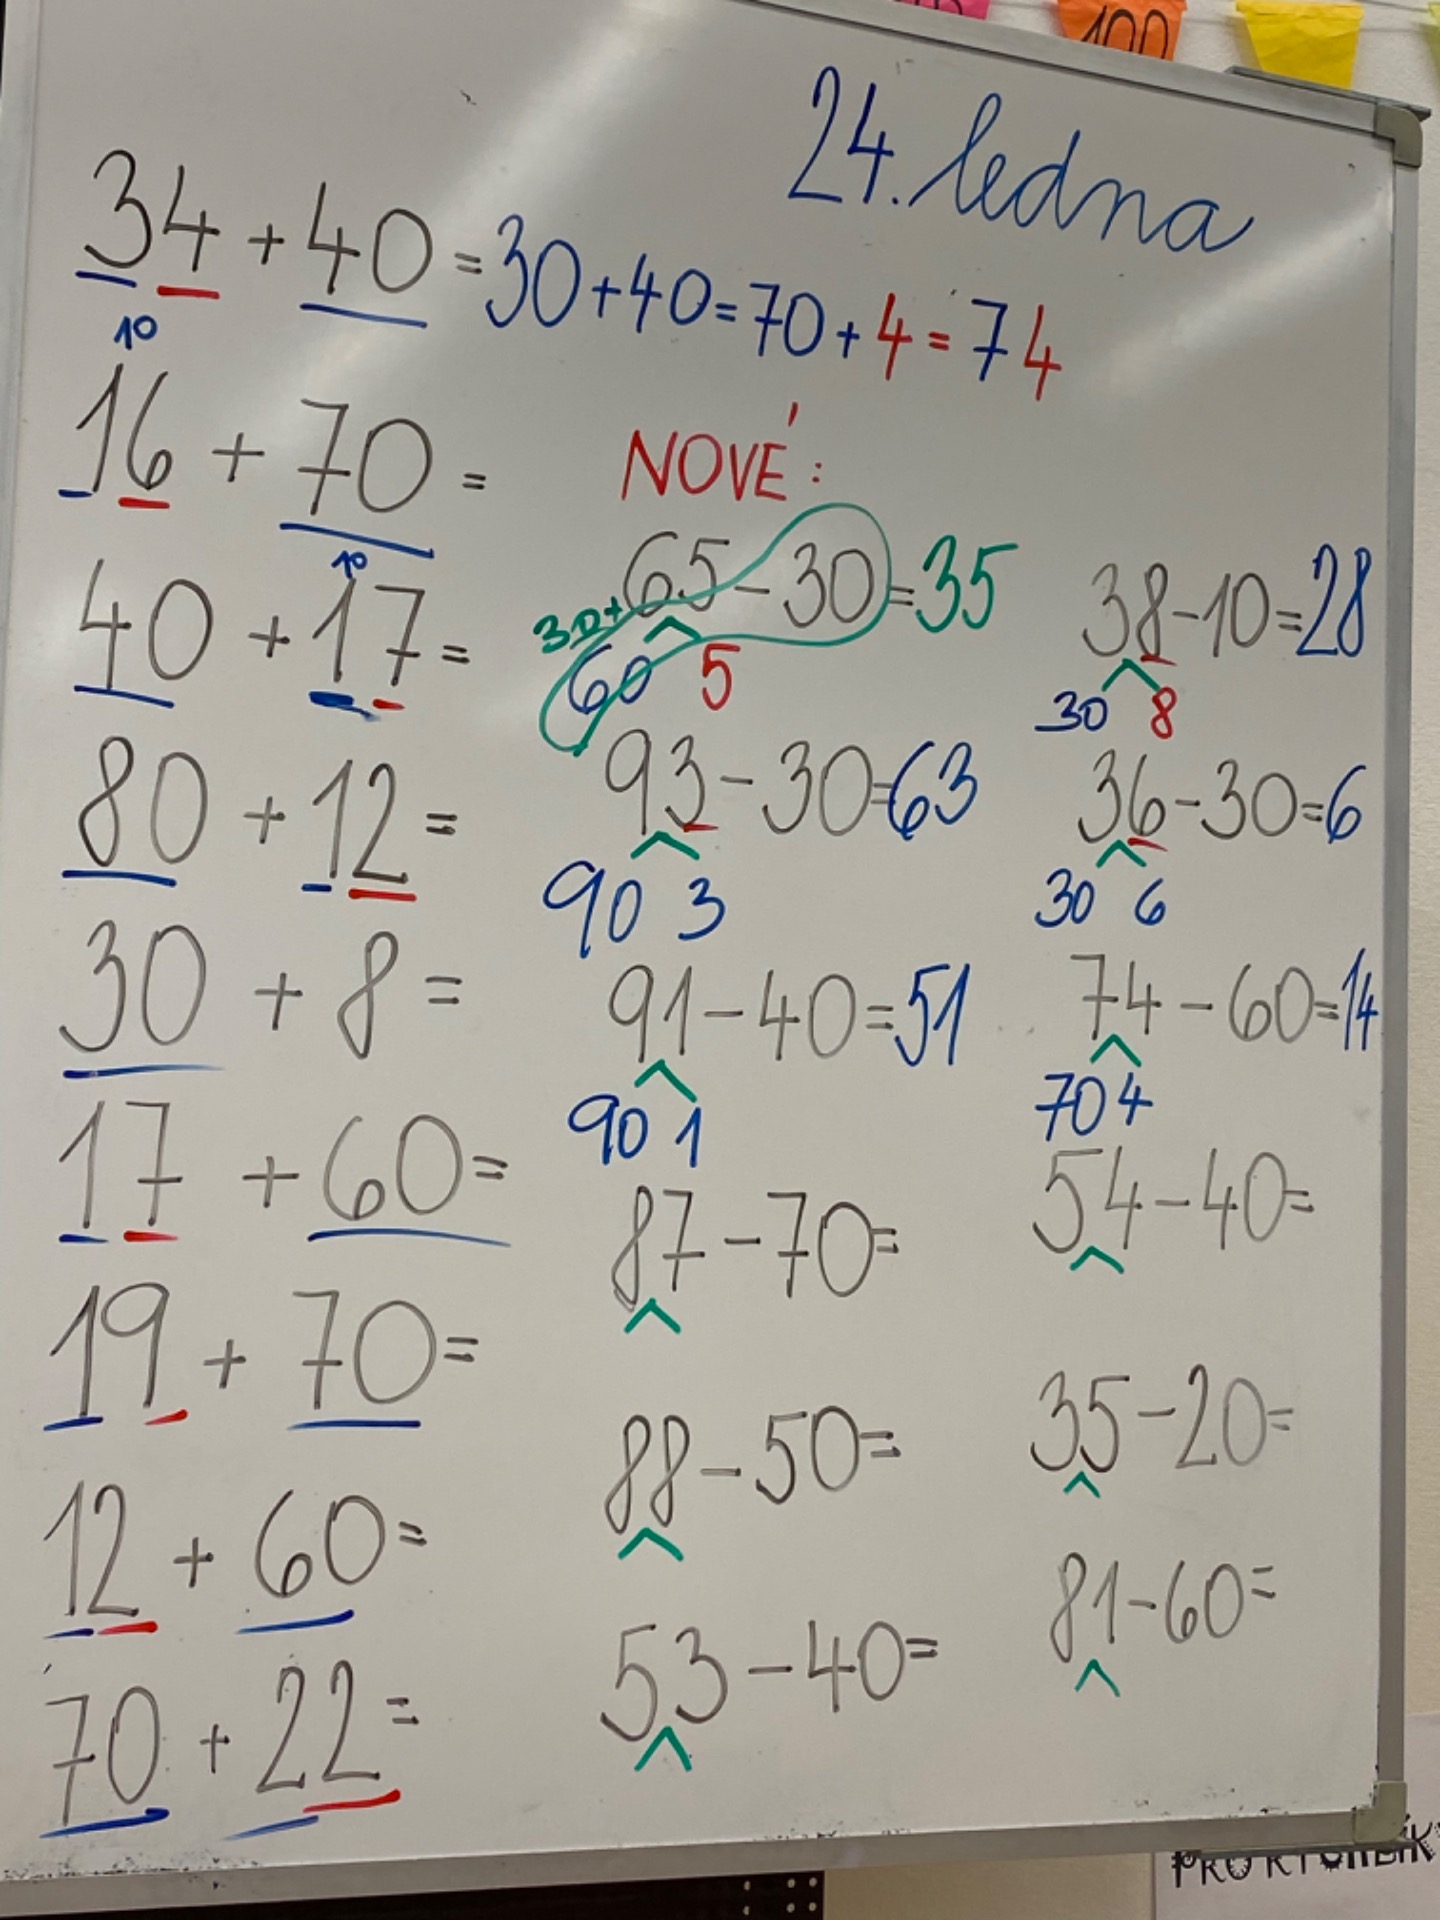 100
24. ledna
34 + 40 = 30 + 40 = 70 + 4 = 74
10
16 + 70 =
10
40 + 17 =
80 + 12 =
30 + 8 =
17 + 60 =
19 + 70 =
12 + 60 =
70 + 22 =
NOVÉ:
65 - 30 = 35
30+
60 5
93 - 30 = 63
90 3
91 - 40 = 51
90 1
87 - 70 =
88 - 50 =
53 - 40 =
38 - 10 = 28
30 8
36 - 30 = 6
30 6
74 - 60 = 14
70 4
54 - 40 =
35 - 20 =
81 - 60 =